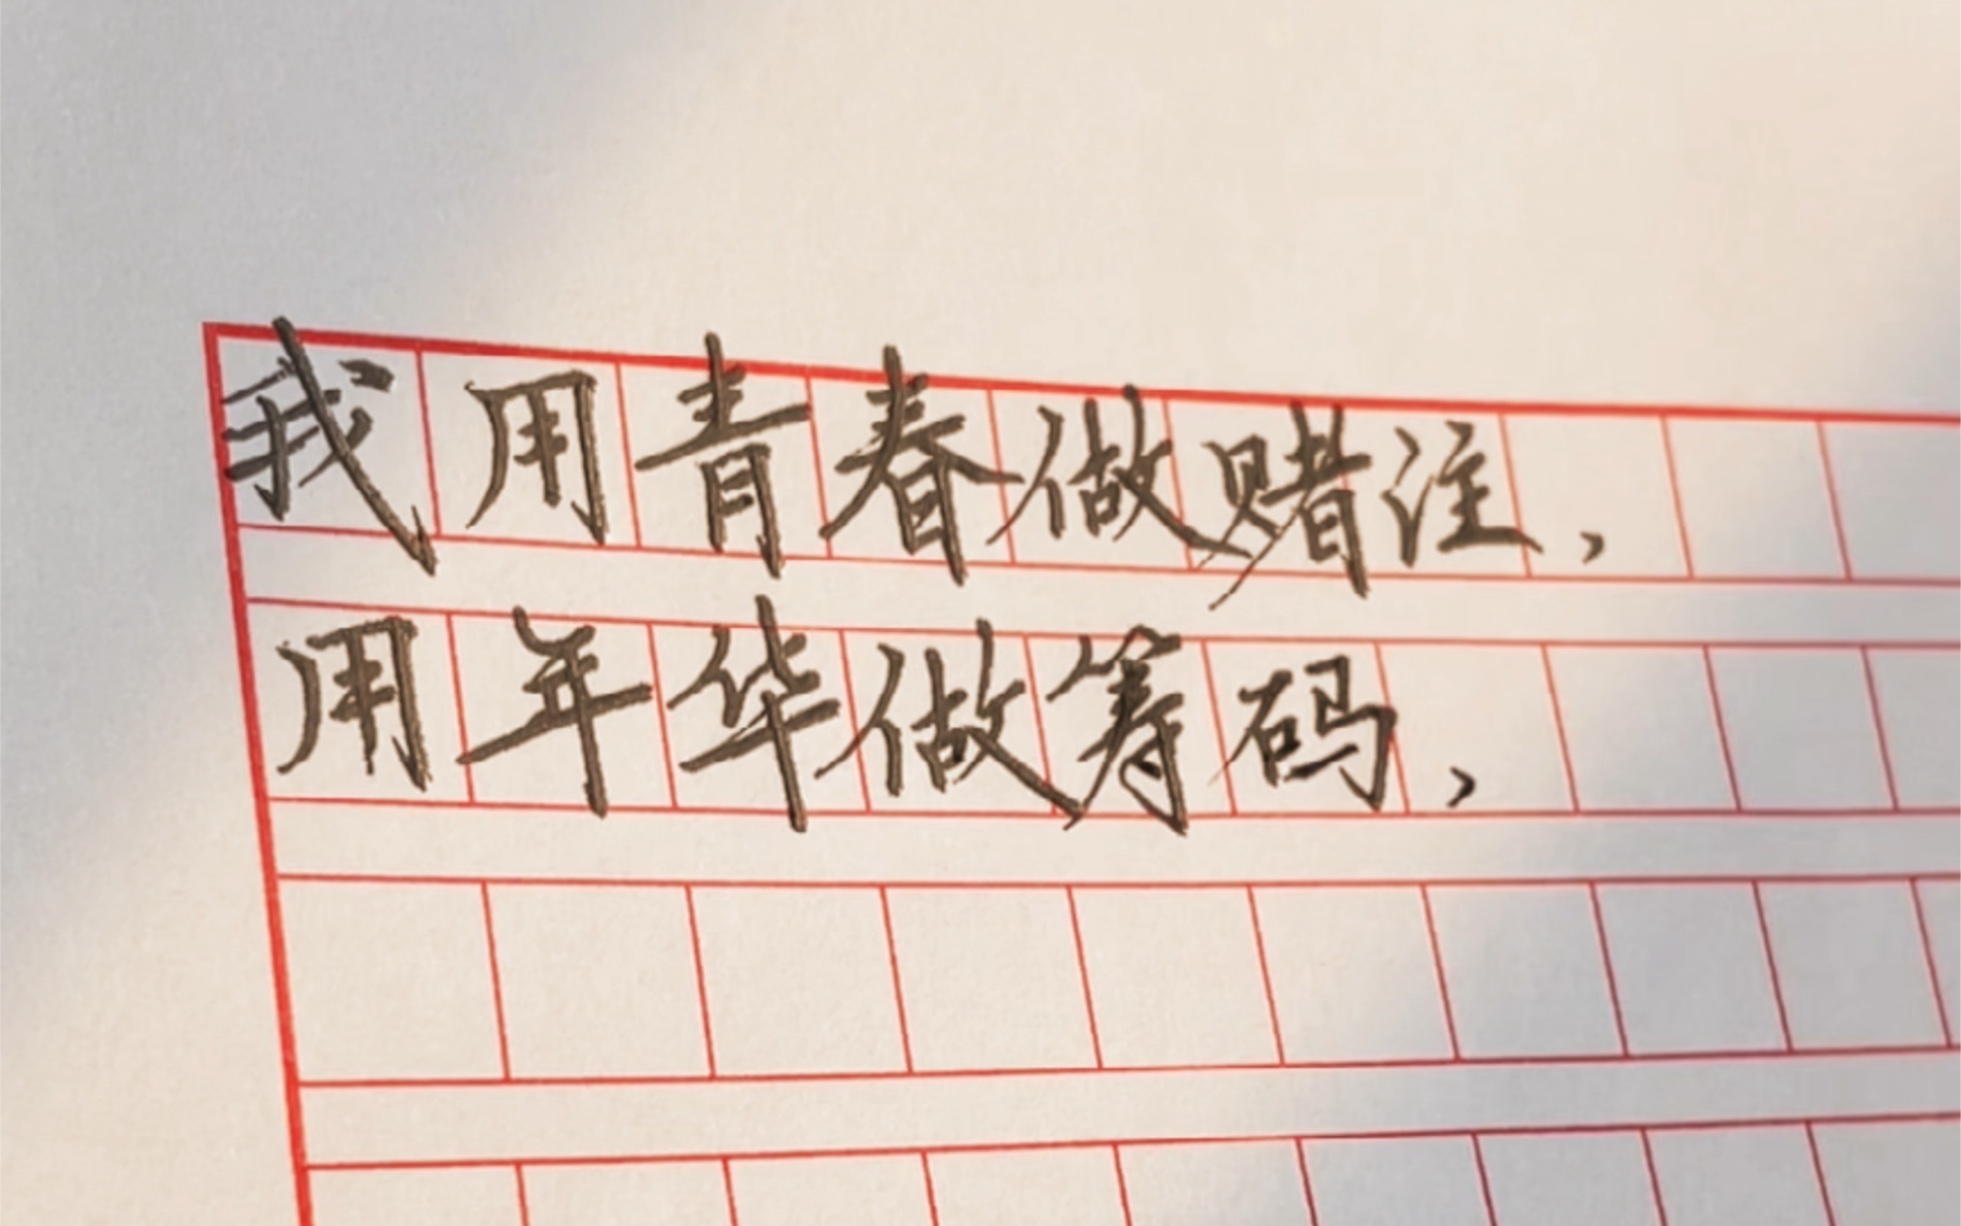 我用青春做赌注，
用年华做筹码，